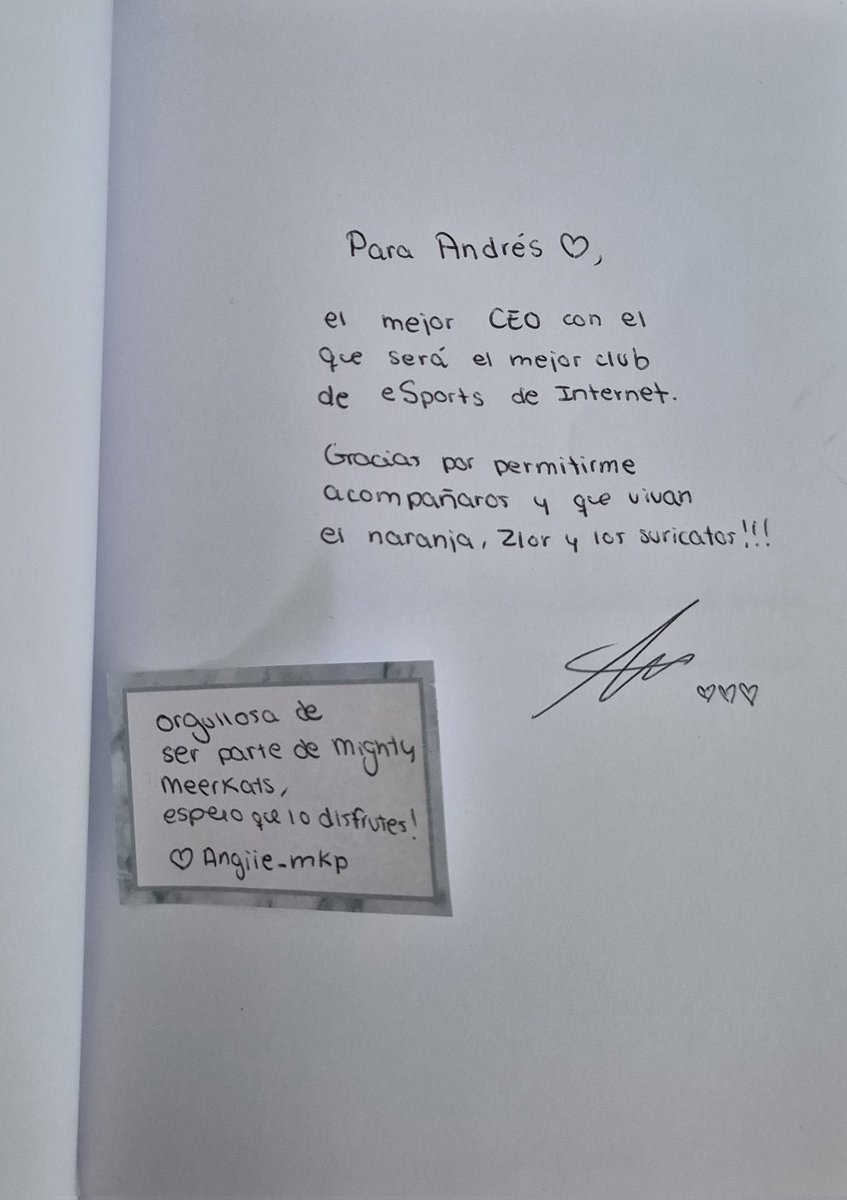 Para Andrés ♡,
el mejor CEO con el
que será el mejor club
de eSports de Internet.
Gracias por permitirme
acompañaros y que vivan
el naranja, Zlor y los suricatos!!!
♡♡♡
orgullosa de
ser parte de Mighty
Meerkats,
espero que lo disfrutes!
♡ Angiie_mkp